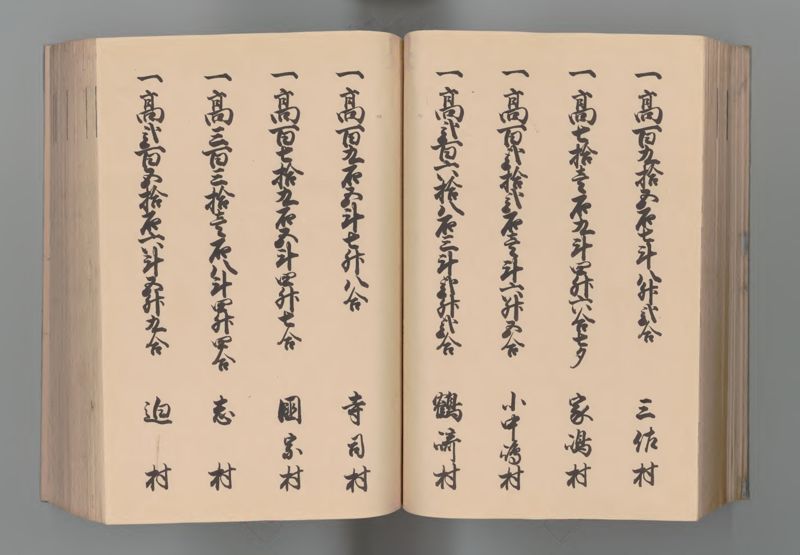 一高百九拾五石七斗八升弐合 三佐村
一高七拾壱石九斗四升六合七夕 家嶋村
一高百弐拾弐石壱斗六升五合 小中嶋村
一高弐百六拾八石三斗弐升弐合 鶴崎村
一高百九石五斗七升八合 寺司村
一高百七拾九石五斗四升七合 國宗村
一高三百三拾壱石八斗四升四合 志村
一高弐百五拾石六斗五升九合 迫村